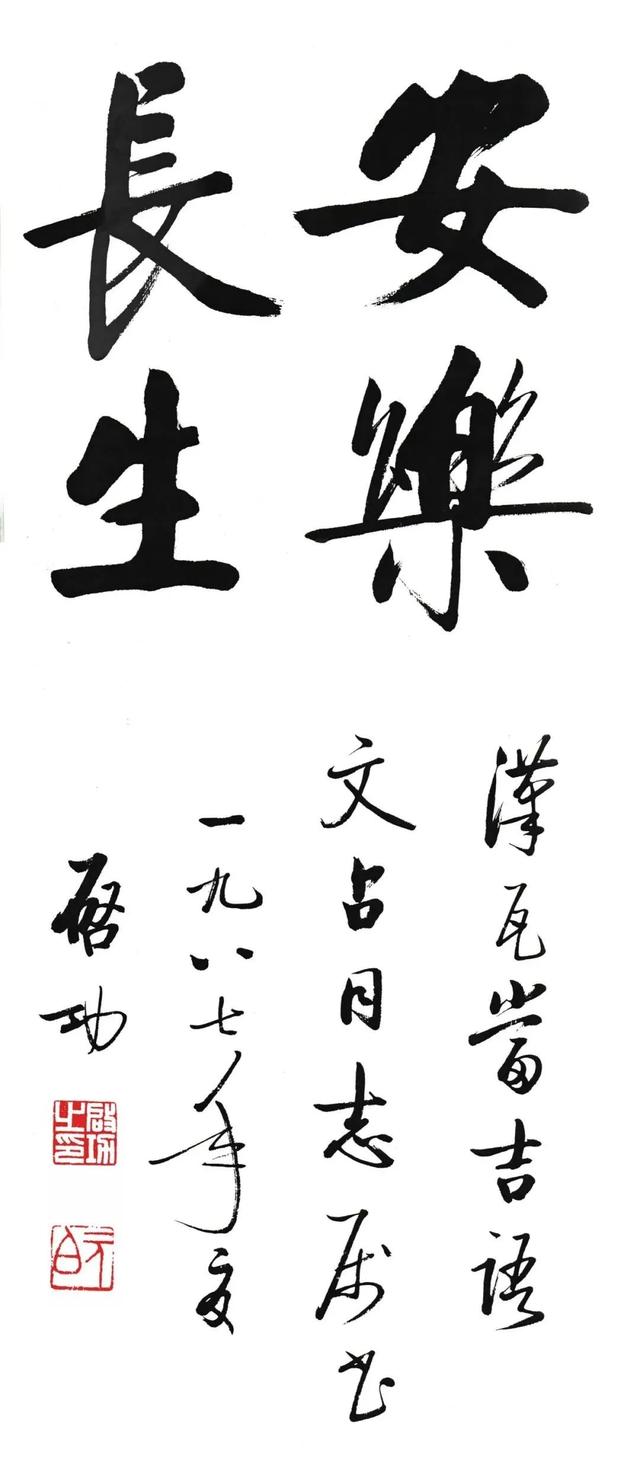 安樂
長生
漢瓦當吉語
文占同志屬書
一九八七年夏
啓功
啟功之印
元白